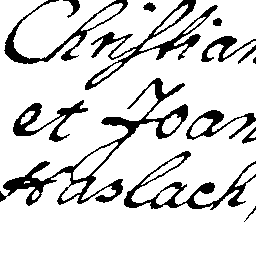 Christian
et Joan
Haslach,